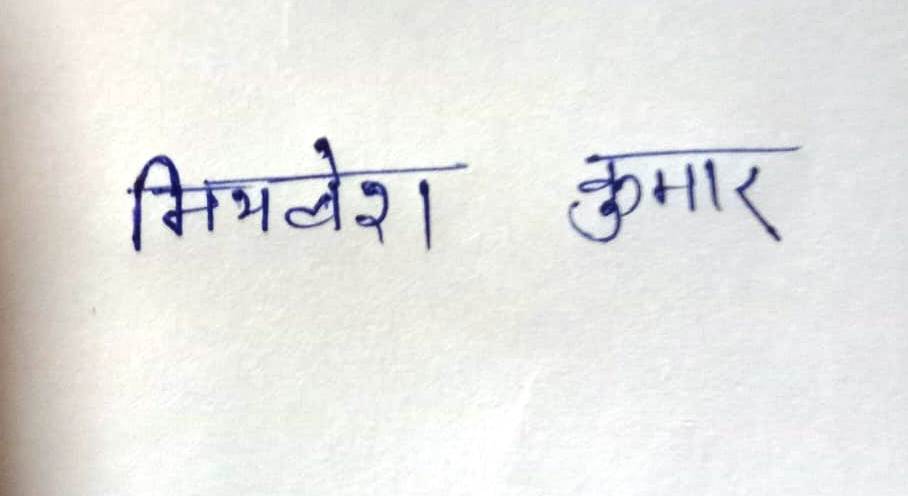 मिथलेश कुमार